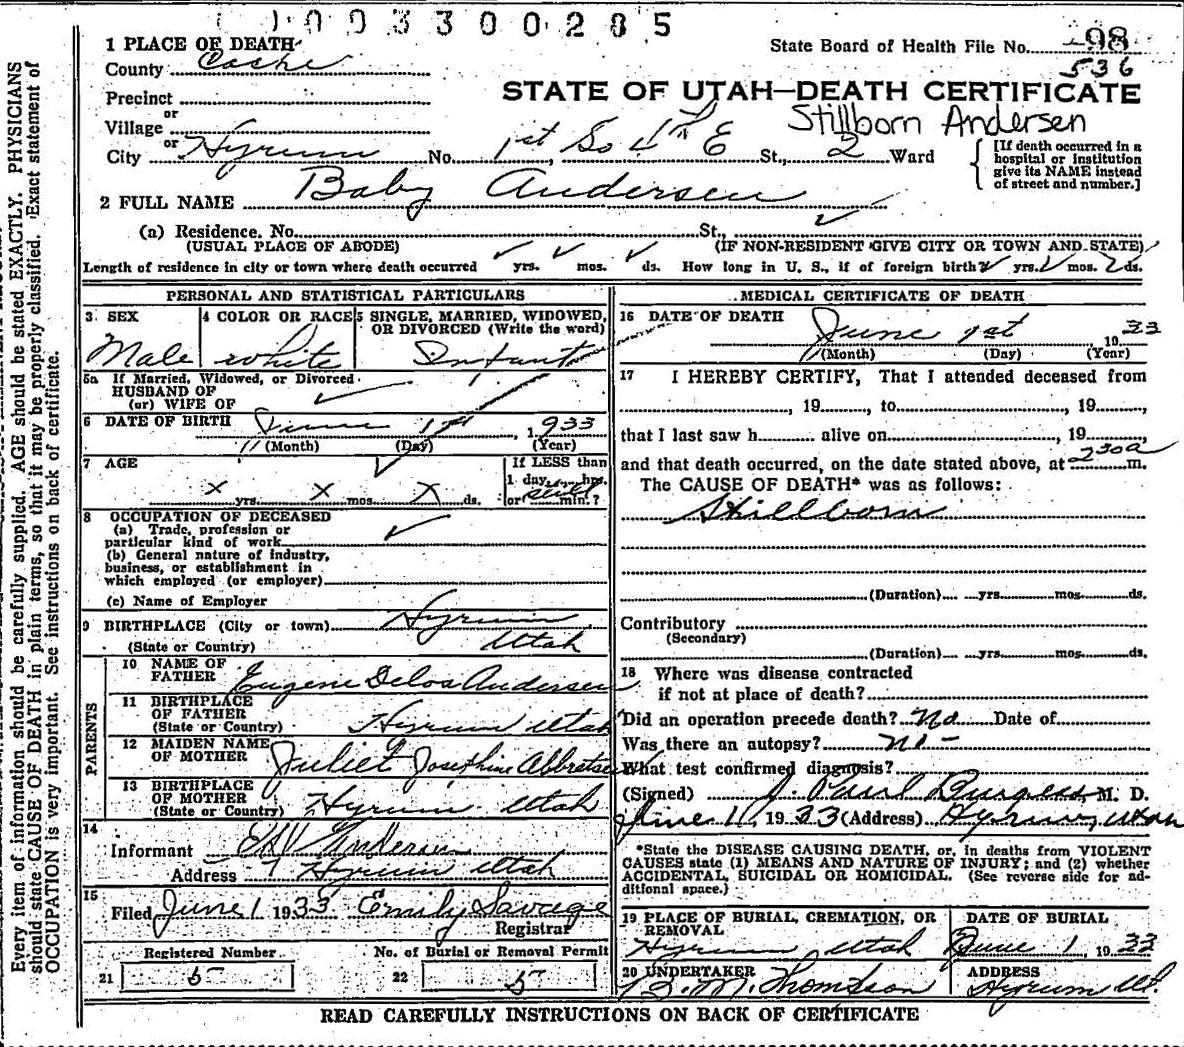 0 0 3 3 0 0 2 8 5
1 PLACE OF DEATH
County Cache
State Board of Health File No. 98
536
Precinct
or
Village
or
City Hyrum No. 1st So 4th E St., 2 Ward
STATE OF UTAH—DEATH CERTIFICATE
Stillborn Andersen
[If death occurred in a
hospital or institution
give its NAME instead
of street and number.]
2 FULL NAME Baby Andersen
(a) Residence. No. St.,
(USUAL PLACE OF ABODE) (IF NON-RESIDENT GIVE CITY OR TOWN AND STATE)
Length of residence in city or town where death occurred yrs. mos. ds. How long in U. S., if of foreign birth? yrs. mos. ds.
PERSONAL AND STATISTICAL PARTICULARS
3 SEX
Male
4 COLOR OR RACE
white
5 SINGLE, MARRIED, WIDOWED,
OR DIVORCED (Write the word)
Infant
5a If Married, Widowed, or Divorced
HUSBAND OF
(or) WIFE OF
6 DATE OF BIRTH June 1st, 1933
(Month) (Day) (Year)
7 AGE
x yrs. x mos. x ds.
If LESS than
1 day, hrs.
or min.?
8 OCCUPATION OF DECEASED
(a) Trade, profession or
particular kind of work
(b) General nature of industry,
business, or establishment in
which employed (or employer)
(c) Name of Employer
9 BIRTHPLACE (City or town) Hyrum
(State or Country) Utah
PARENTS
10 NAME OF
FATHER Eugene Delos Andersen
11 BIRTHPLACE
OF FATHER
(State or Country) Hyrum Utah
12 MAIDEN NAME
OF MOTHER Juliet Josephine
13 BIRTHPLACE
OF MOTHER
(State or Country) Hyrum Utah
14
Informant Andersen
Address Hyrum Utah
15
Filed June 1 1933 Emily Savage
Registrar
Registered Number No. of Burial or Removal Permit
21 5 22 5
MEDICAL CERTIFICATE OF DEATH
16 DATE OF DEATH June 1st 1933
(Month) (Day) (Year)
17 I HEREBY CERTIFY, That I attended deceased from
, 19, to, 19,
that I last saw h alive on, 19,
and that death occurred, on the date stated above, at 230a m.
The CAUSE OF DEATH* was as follows:
Stillborn
(Duration) yrs. mos. ds.
Contributory
(Secondary)
(Duration) yrs. mos. ds.
18 Where was disease contracted
if not at place of death?
Did an operation precede death? No Date of
Was there an autopsy? no
What test confirmed diagnosis?
(Signed) J. Paul Burgess, M. D.
June 1, 1933 (Address) Hyrum, Utah
*State the DISEASE CAUSING DEATH, or, in deaths from VIOLENT
CAUSES state (1) MEANS AND NATURE OF INJURY; and (2) whether
ACCIDENTAL, SUICIDAL OR HOMICIDAL. (See reverse side for ad-
ditional space.)
19 PLACE OF BURIAL, CREMATION, OR
REMOVAL
Hyrum Utah
DATE OF BURIAL
June 1, 1933
20 UNDERTAKER
M. Thompson
ADDRESS
Hyrum Ut.
READ CAREFULLY INSTRUCTIONS ON BACK OF CERTIFICATE
Every item of information should be carefully supplied. AGE should be stated EXACTLY. PHYSICIANS
should state CAUSE OF DEATH in plain terms, so that it may be properly classified. Exact statement of
OCCUPATION is very important. See instructions on back of certificate.